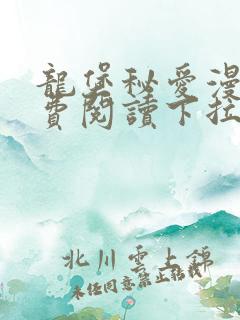 龍堡秘愛漫
費閱讀下拉
北川雲上錦
未經同意禁止轉載